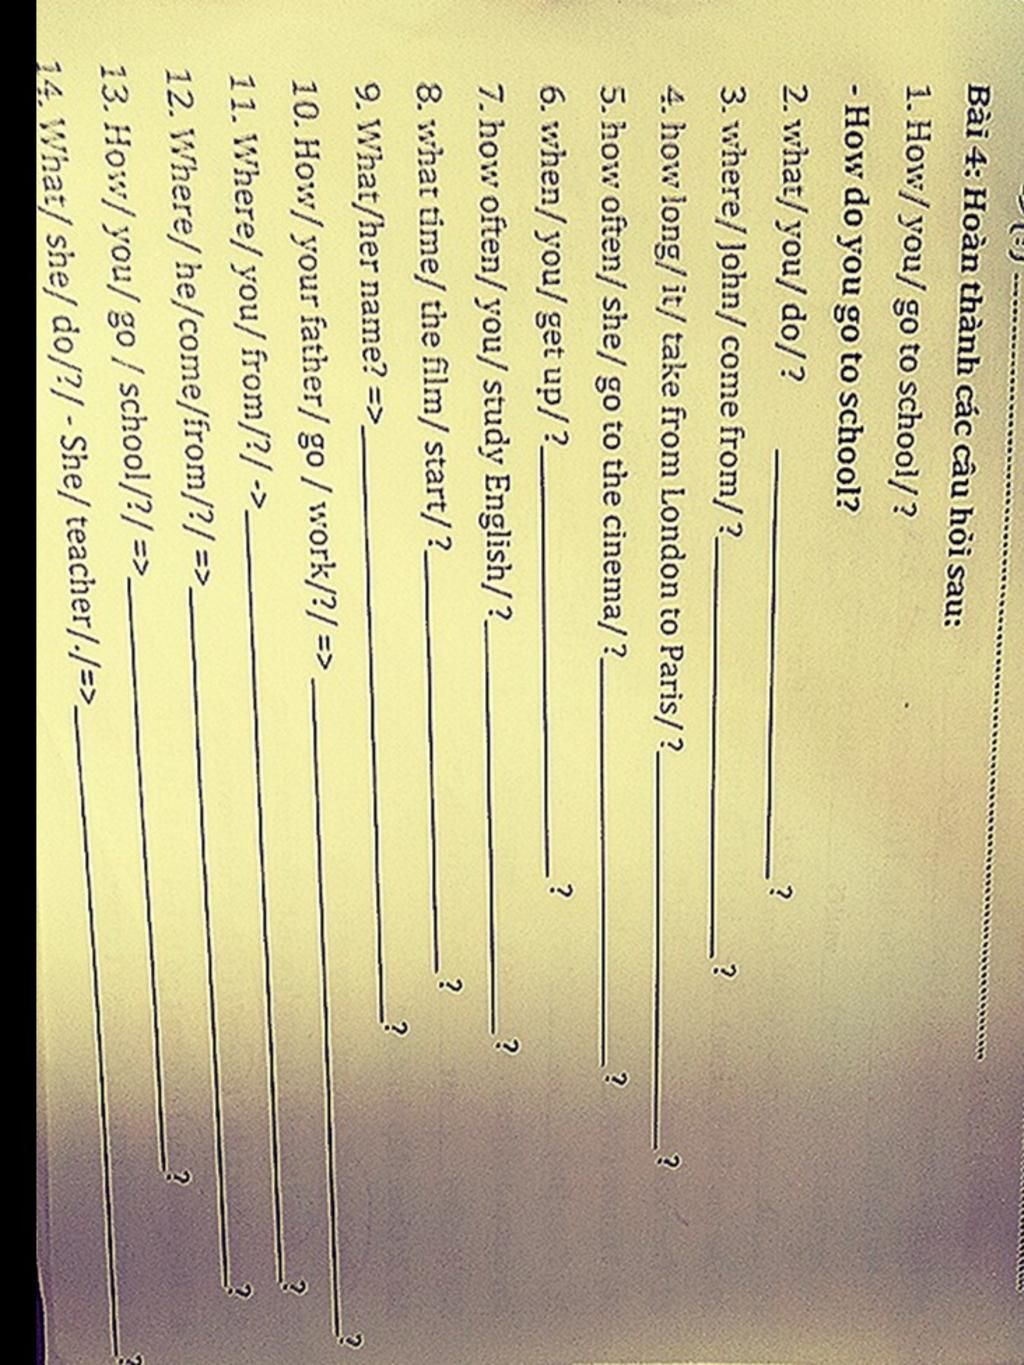 Bài 4: Hoàn thành các câu hỏi sau:
1. How/ you/ go to school/ ?
- How do you go to school?
2. what/ you/ do/ ? ?
3. where/ John/ come from/ ? ?
4. how long/ it/ take from London to Paris/ ? ?
5. how often/ she/ go to the cinema/ ? ?
6. when/ you/ get up/ ? ?
7. how often/ you/ study English/ ? ?
8. what time/ the film/ start/ ? ?
9. What/her name? => ?
10. How/ your father/ go / work/?/ => ?
11. Where/ you/ from/?/ -> ?
12. Where/ he/come/from/?/ => ?
13. How/ you/ go / school/?/ => ?
14. What/ she/ do/?/ - She/ teacher/./=> ?